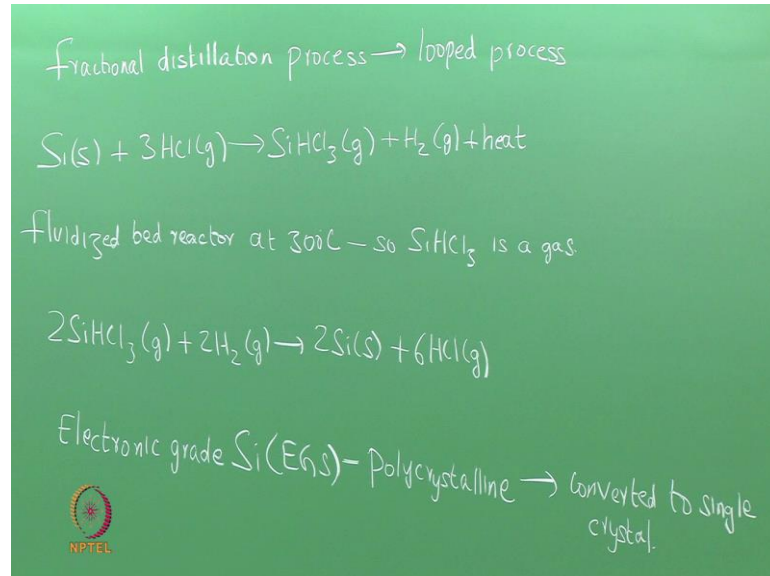 fractional distillation process → looped process
Si(s) + 3HCl(g) → SiHCl₃(g) + H₂(g) + heat
fluidized bed reactor at 300°C – so SiHCl₃ is a gas.
2SiHCl₃(g) + 2H₂(g) → 2Si(s) + 6HCl(g)
Electronic grade Si (EGS) – Polycrystalline → converted to single
crystal.
NPTEL